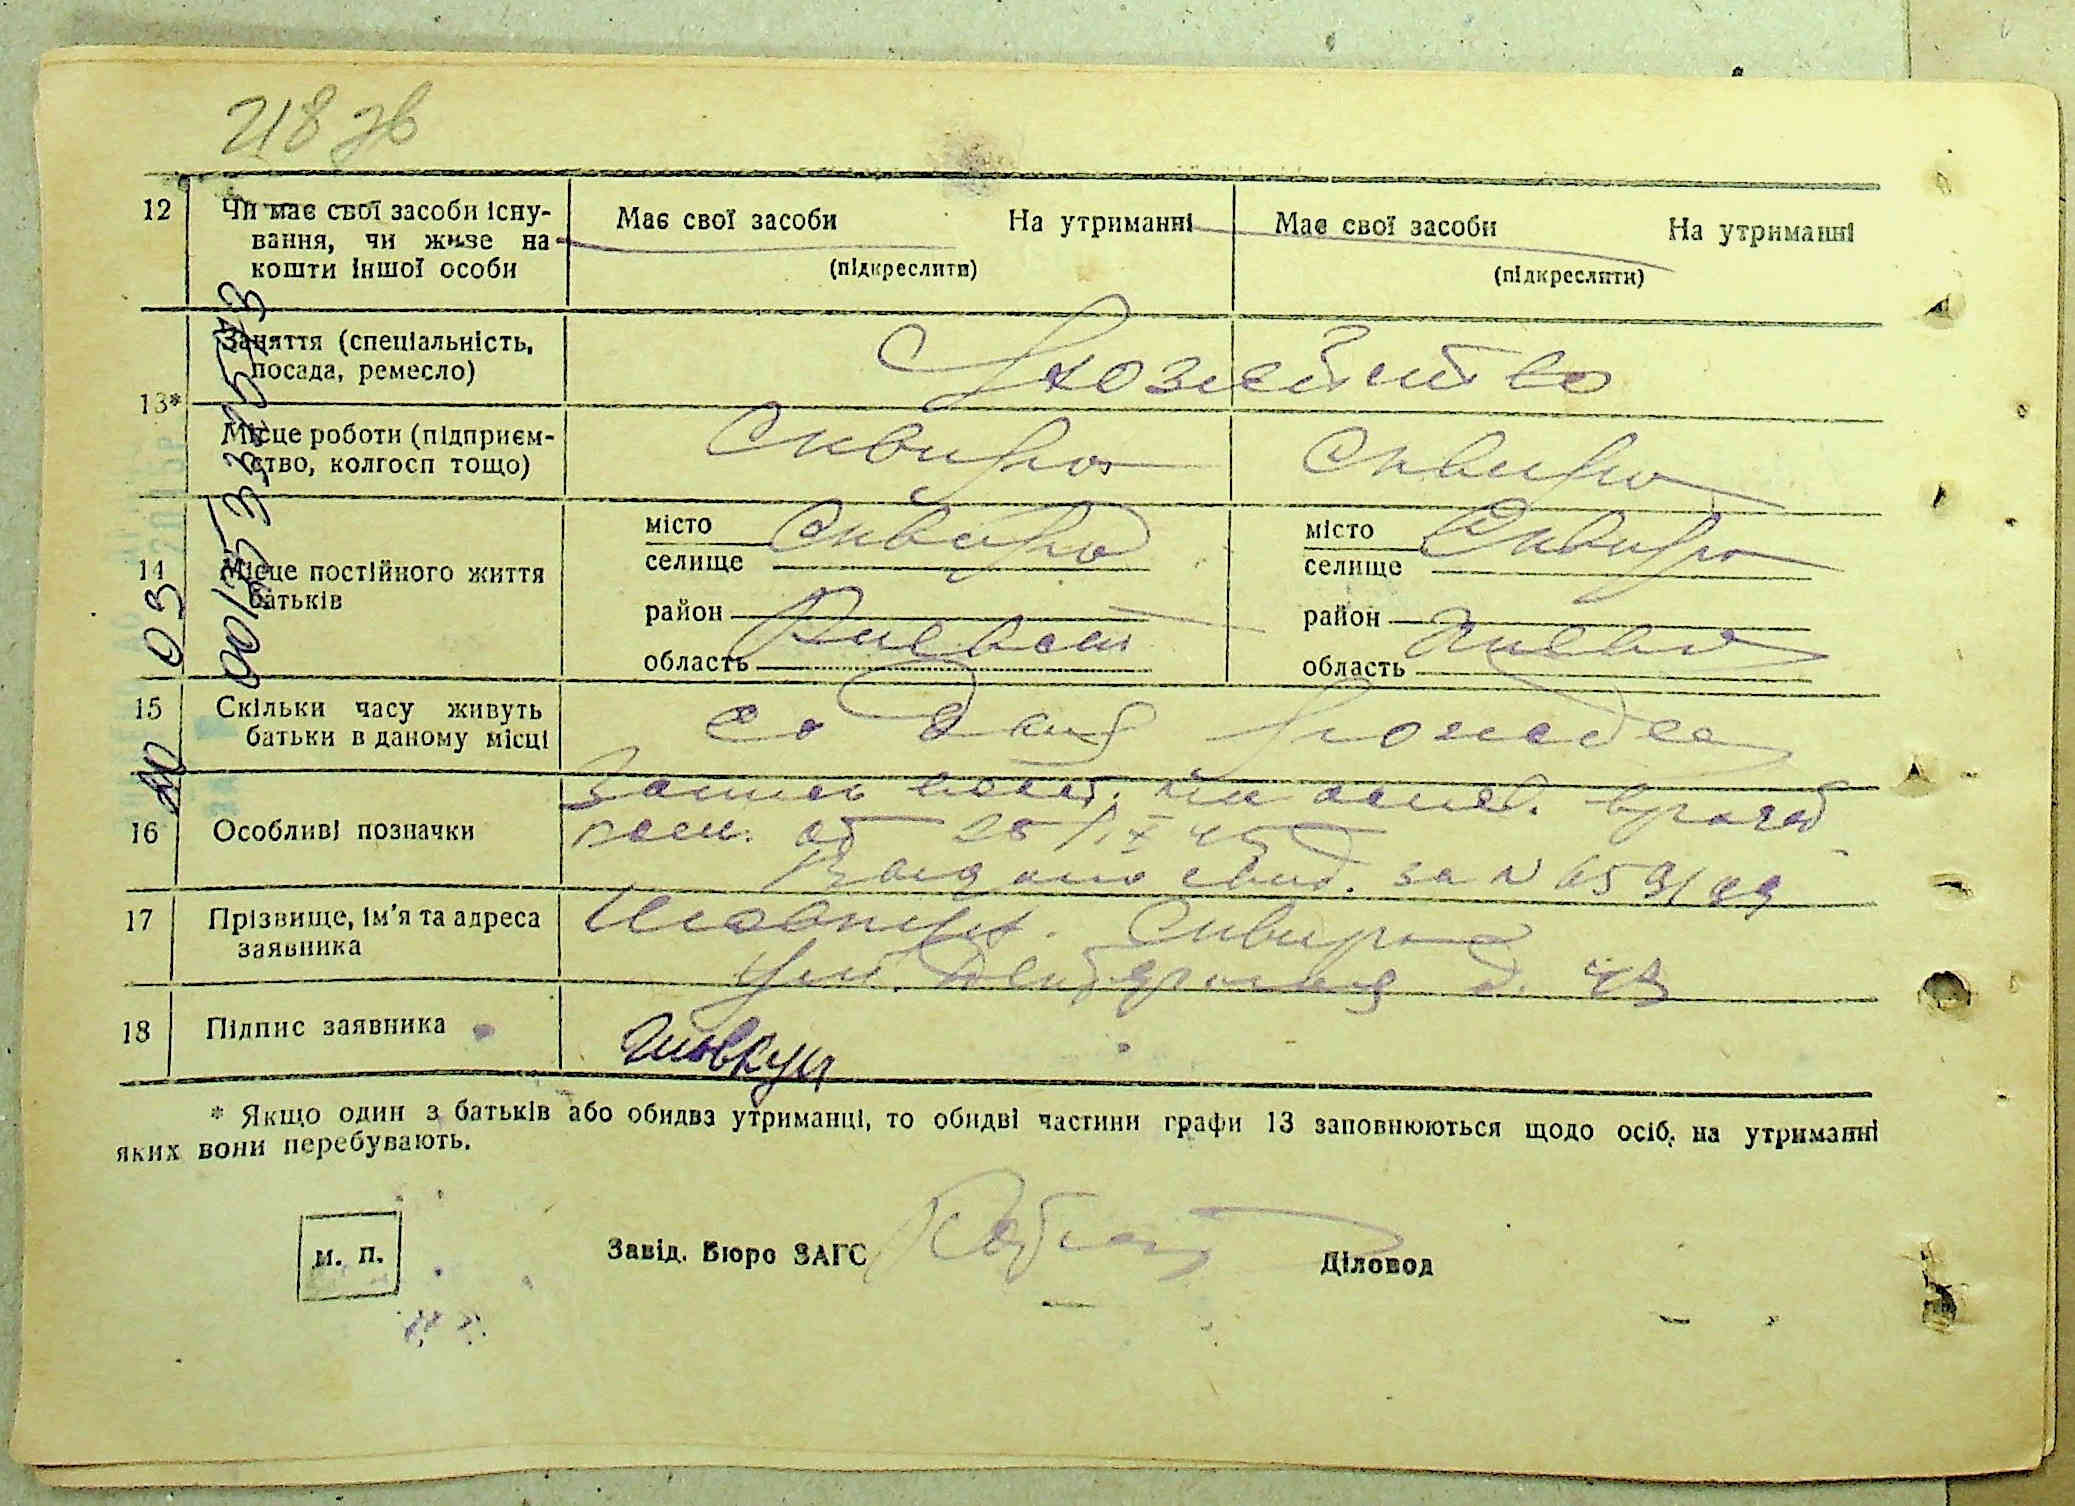 218 зв
12 Чи має свої засоби існу-
вання, чи живе на
кошти іншої особи
Має свої засоби На утриманні
(підкреслити)
Має свої засоби На утриманні
(підкреслити)
13*
Заняття (спеціальність,
посада, ремесло)
С / хозяйство
Місце роботи (підприєм-
ство, колгосп тощо)
Сквира Сквира
14 Місце постійного життя
батьків
місто Сквира
селище
район
область Киевская
місто Сквира
селище
район
область Киевск
15 Скільки часу живуть
батьки в даному місці
со дня рожд
16 Особливі позначки
Запись
от 25/IX 45
Выдано свид. за N
17 Прізвище, ім'я та адреса
заявника
Шовкун. Сквира
ул. д. 43
18 Підпис заявника
Шовкун
* Якщо один з батьків або обидва утриманці, то обидві частини графи 13 заповнюються щодо осіб, на утриманні
яких вони перебувають.
М. П.
Завід. Бюро ЗАГС
Діловод